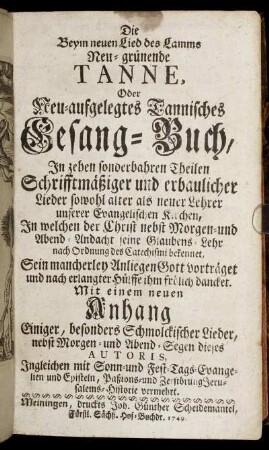 Die
Beym neuen Lied des Lamms
Neu-grünende
TANNE,
Oder
Neu-aufgelegtes Tannisches
Gesang-Buch,
In zehen sonderbahren Theilen
Schrifftmäßiger und erbaulicher
Lieder sowohl alter als neuer Lehrer
unserer Evangelischen Kirchen,
In welchen der Christ nebst Morgen- und
Abend-Andacht seine Glaubens-Lehr
nach Ordnung des Catechismi bekennet,
Sein mancherley Anliegen Gott vorträget
und nach erlangter Hülffe ihm frölich dancket.
Mit einem neuen
Anhang
Einiger, besonders Schmolckischer Lieder,
nebst Morgen- und Abend-Segen dieses
AUTORIS,
Ingleichen mit Sonn- und Fest-Tags-Evange-
lien und Episteln, Paßions- und Zerstöhrung Jeru-
salems-Historie vermehrt.
Meiningen, druckts Joh. Günther Scheidemantel,
Fürstl. Sächß. Hof-Buchdr. 1749.